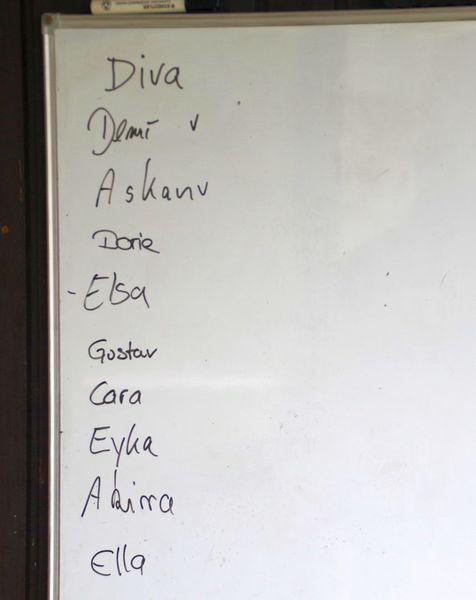 STAEDTLER
Diva
Demi v
Askan v
Dorie
- Elsa
Gustav
Cara
Eyka
Akirra
Ella